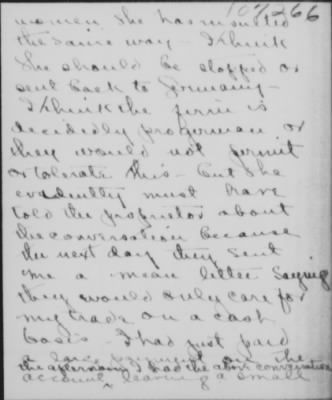 107266
women she has insulted
the same way — I think
she should be stopped or
sent back to Germany —
I think the firm is
decidedly progerman or
they would not permit
or tolerate this — but she
evidently must have
told the proprietor about
the conversation because
the next day they sent
me a mean letter saying
they would only care for
my trade on a cash
basis — I had just paid
a large payment on the
the afternoon I had the above conversation
account, leaving a small